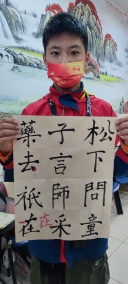 松下問童
子言師采
藥去祇茬
在